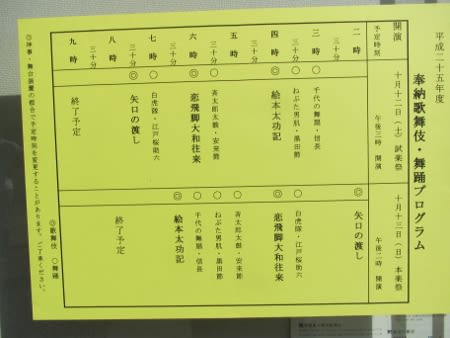 平成二十五年度
奉納歌舞伎・舞踊プログラム
開演
予定時刻
十月十二日(土)試楽祭
午後三時 開演
十月十三日(日)本楽祭
午後二時 開演
二時
◎ 矢口の渡し
三十分
三時
○ 千代の舞扇・信長
○ 白虎隊・江戸桜助六
三十分
○ ねぶた男肌・黒田節
四時
◎ 絵本太功記
◎ 恋飛脚大和往来
三十分
五時
○ 斉太郎太鼓・安来節
三十分
○ 斉太郎太鼓・安来節
○ ねぶた男肌・黒田節
六時
◎ 恋飛脚大和往来
○ 千代の舞扇・信長
三十分
◎ 絵本太功記
七時
○ 白虎隊・江戸桜助六
三十分
◎ 矢口の渡し
八時
終了予定
三十分
九時
終了予定
◎歌舞伎 ○舞踊
◎神事・舞台装置の都合で予定時間を変更することがあります。ご了承ください。